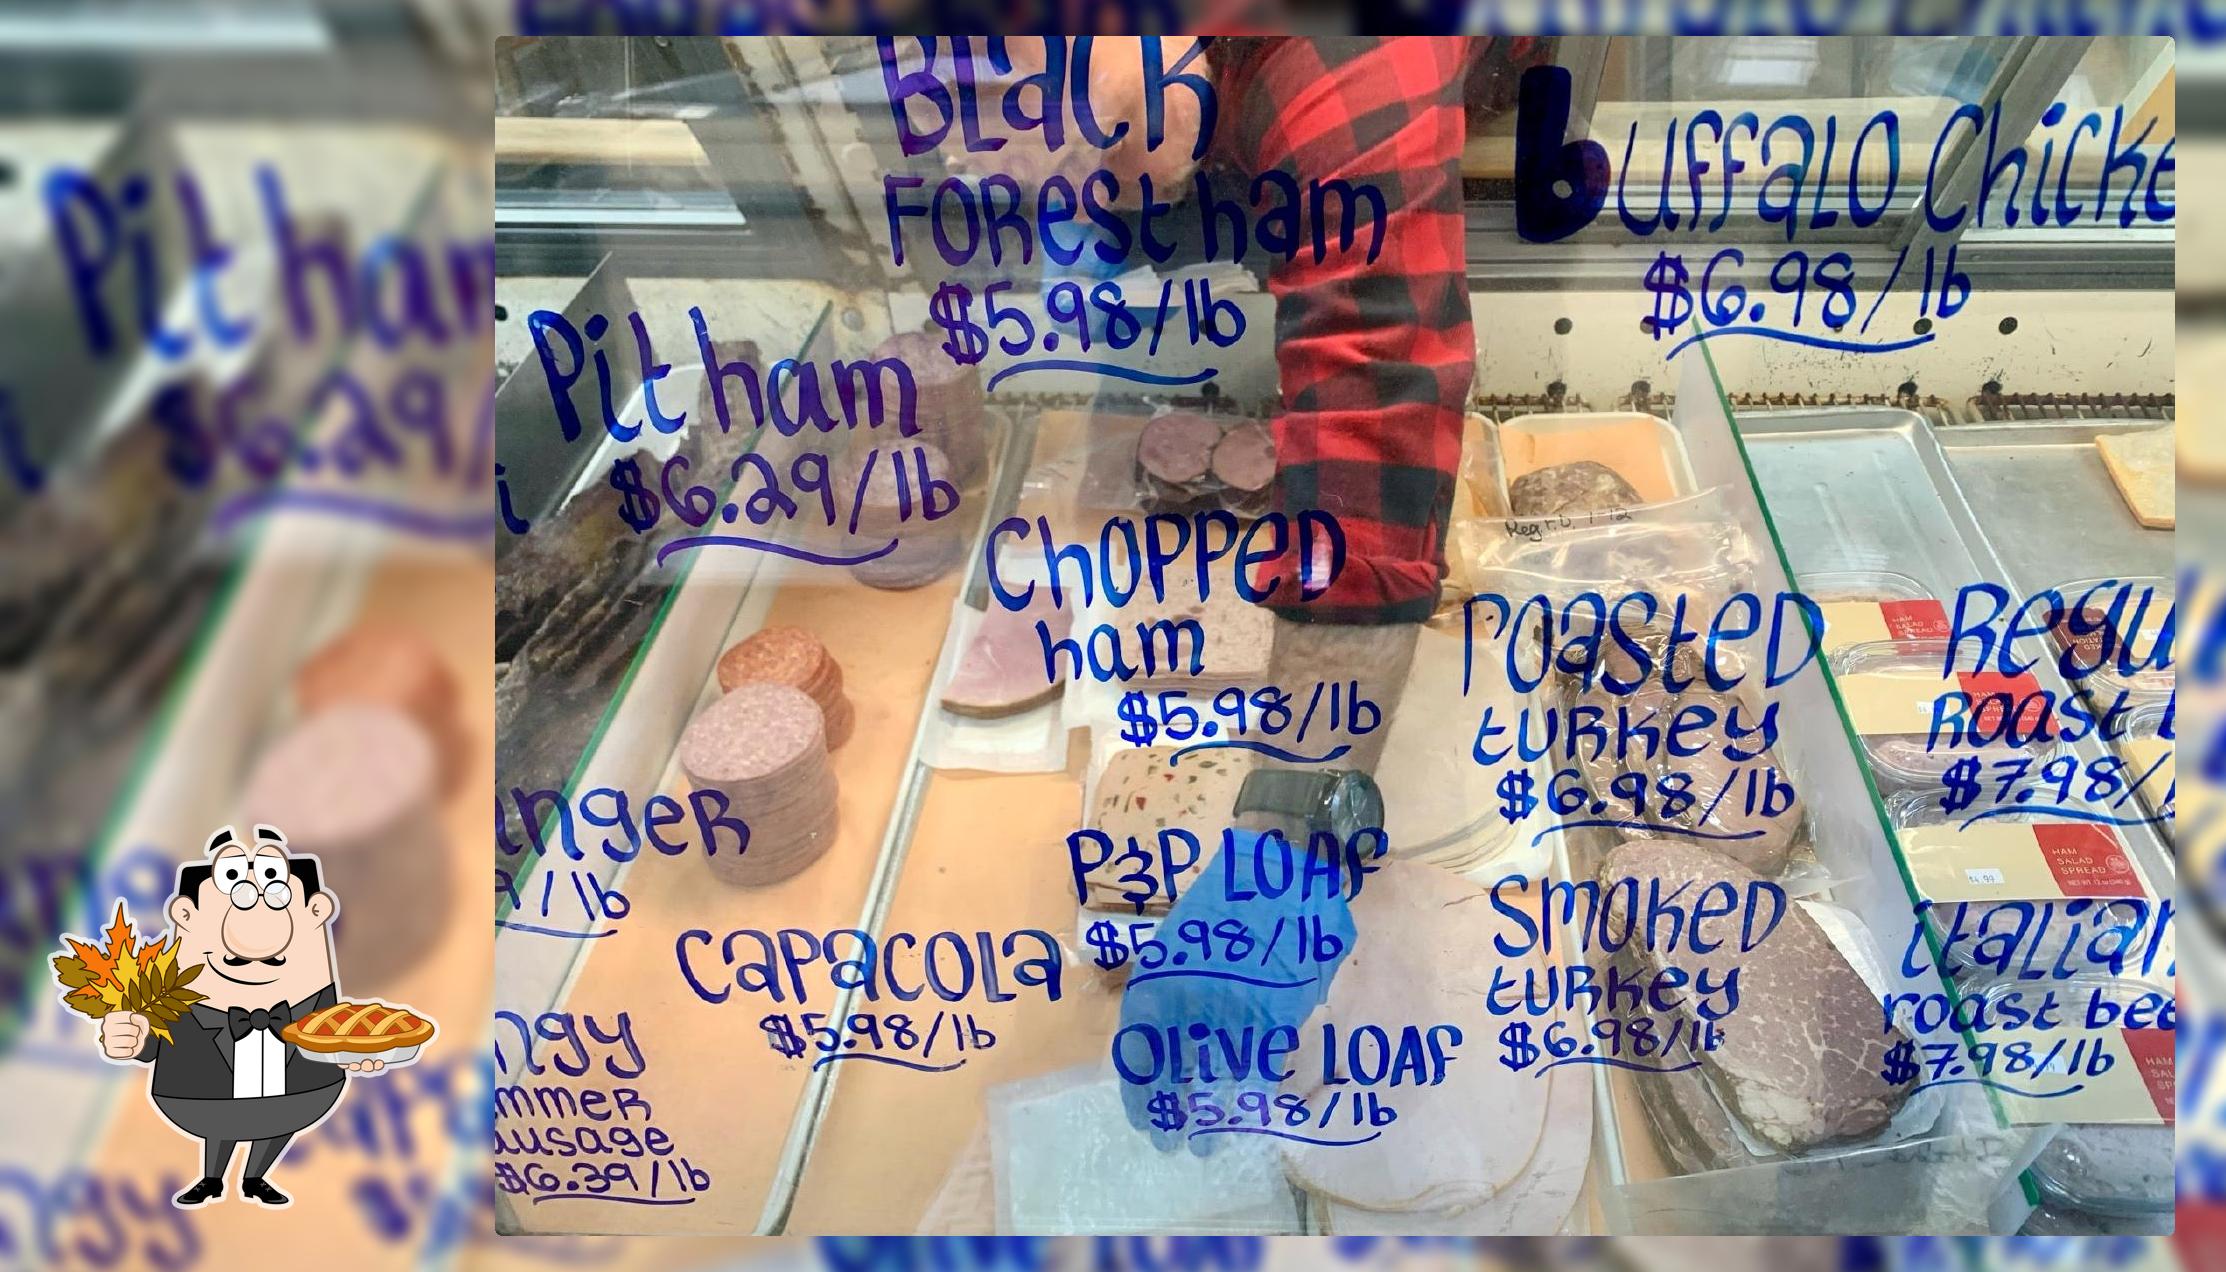 BLack
FORest ham
$5.98/lb
buffaLO Chicke
$6.98/lb
Pit ham
$6.29/lb
i
ChOPPeD
ham
$5.98/lb
roasteD
tURkey
$6.98/lb
Regu
ROast b
$7.98/
angeR
9/lb
P&P LOAf
$5.98/lb
CaPaCOLa
$5.98/lb
SmOkeD
tURkey
$6.98/lb
itaLian
roast bee
$7.98/lb
OLive LOAf
$5.98/lb
ngy
mmeR
ausage
$6.39/lb
HAM
SALAD
SPREAD
$4.99